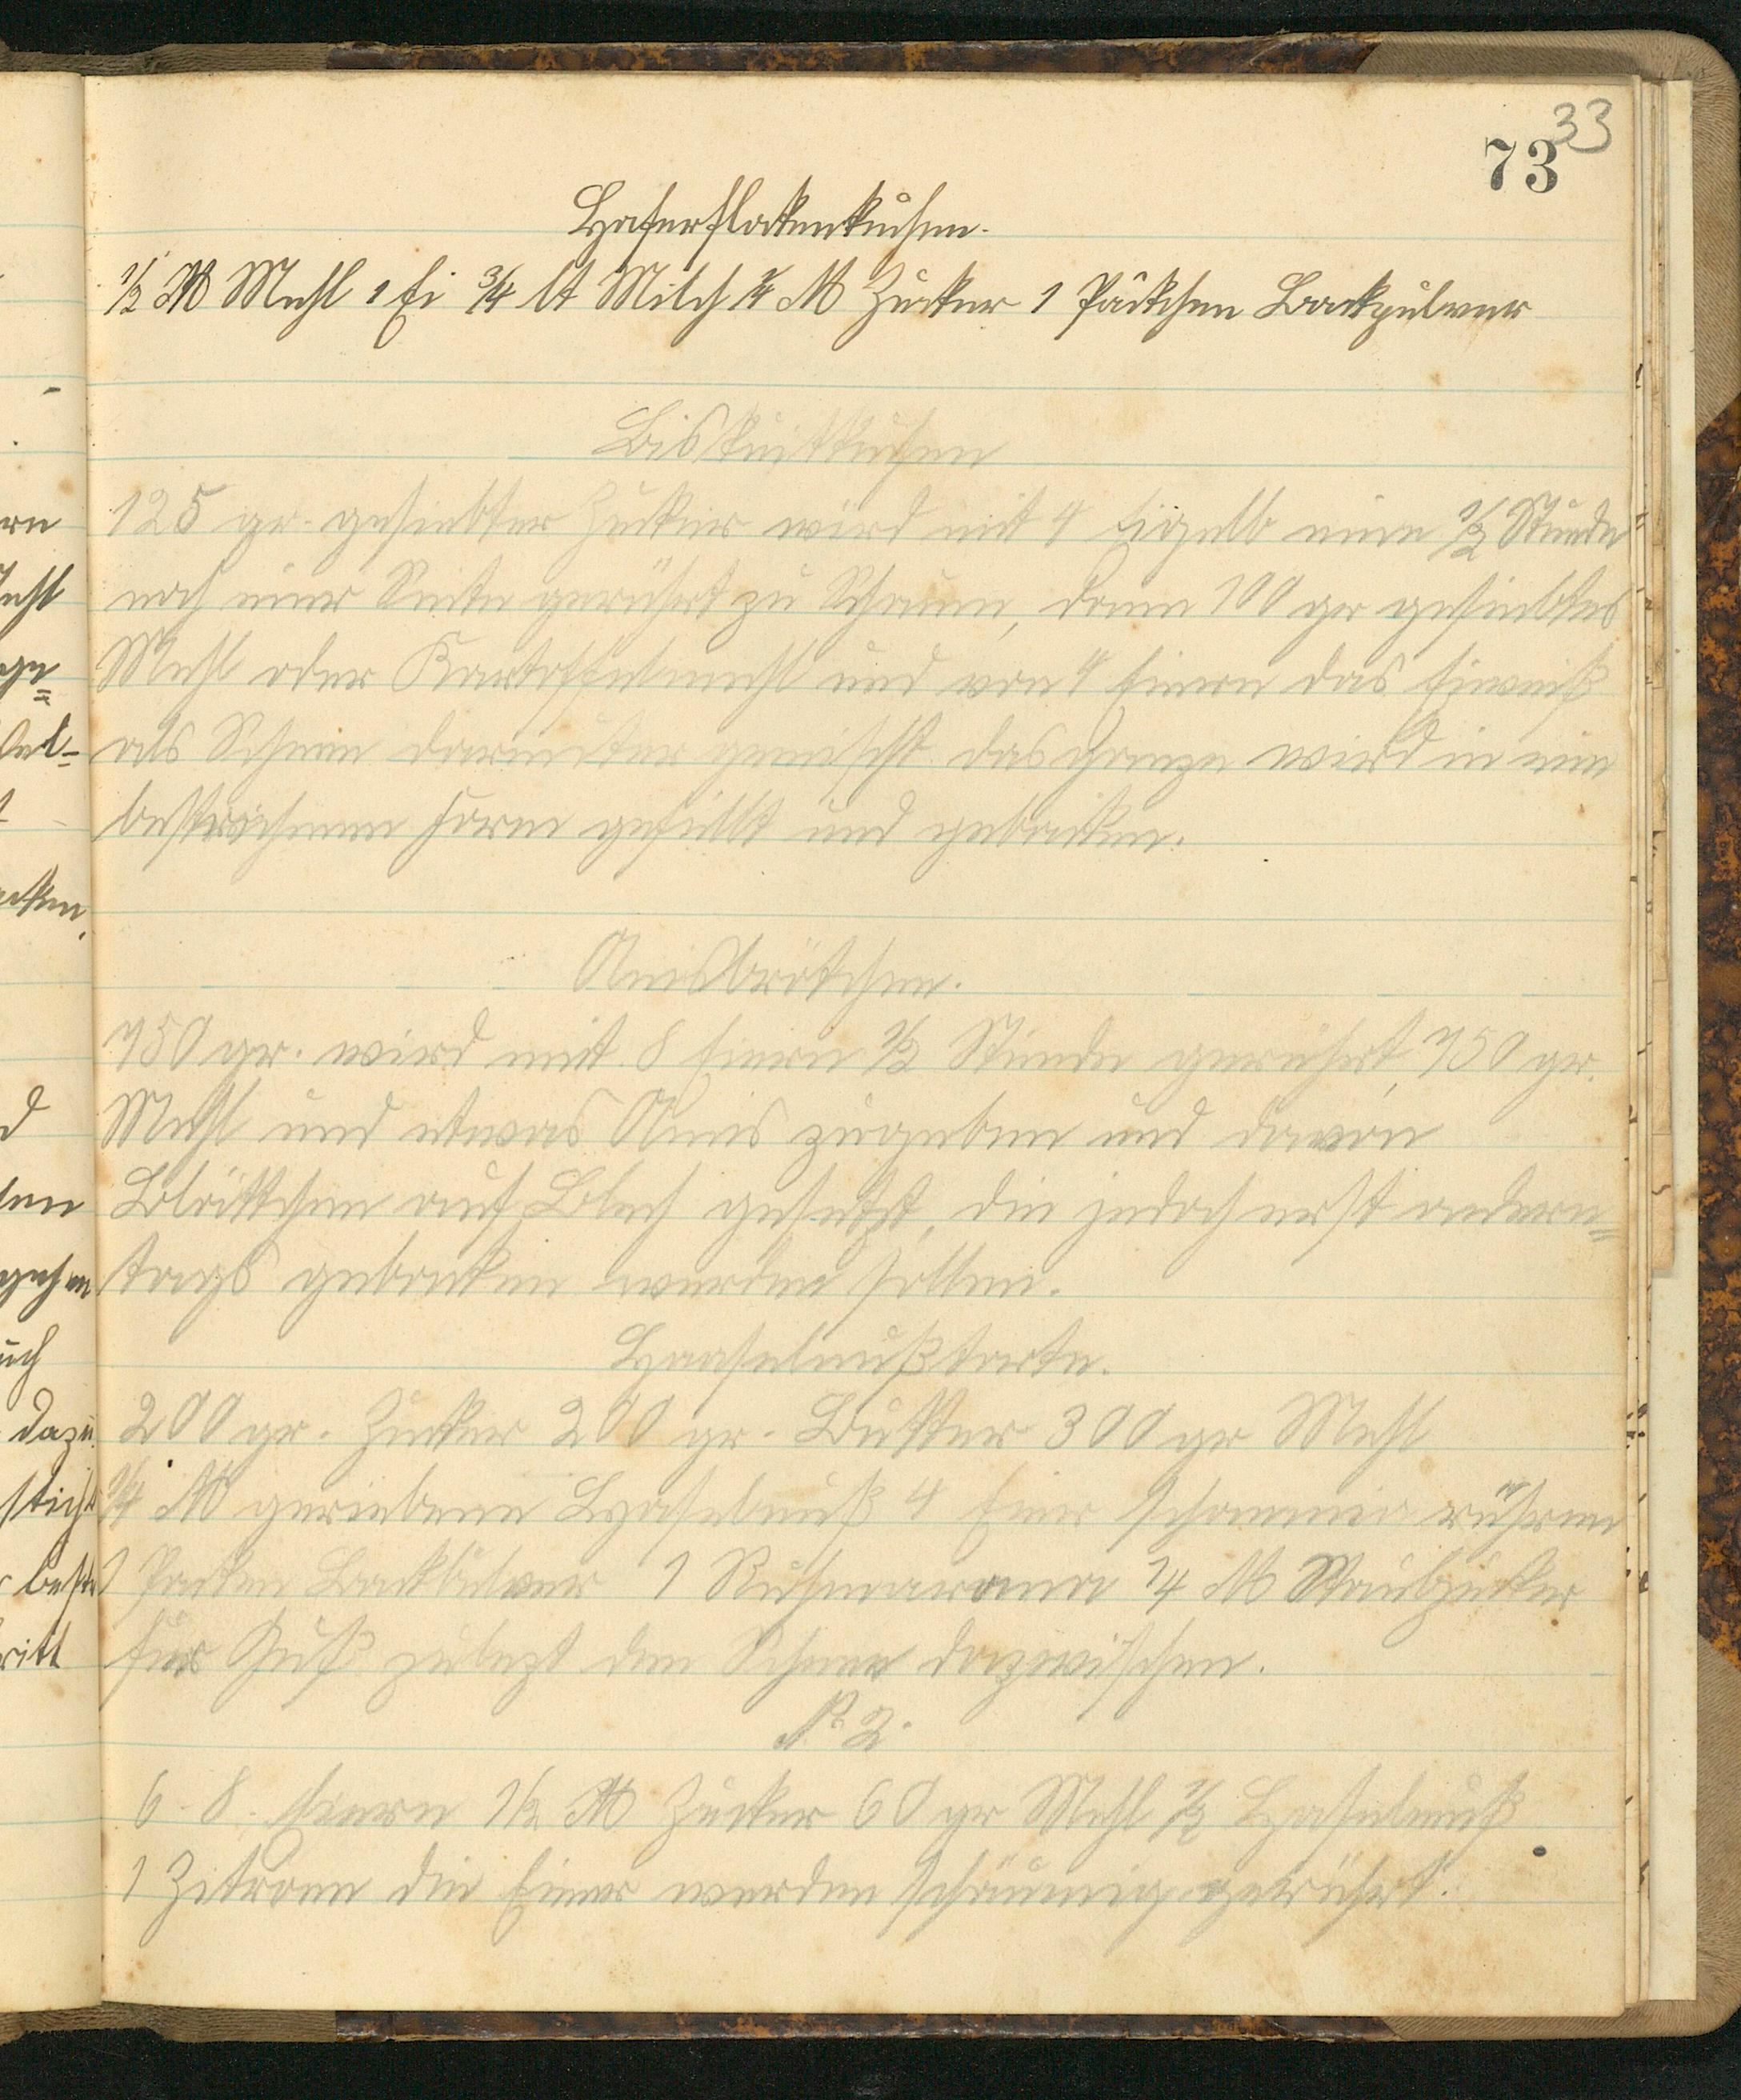 33
73
Haferflockenkuchen.
½ ℔ Mehl 1 Ei ¾ lt Milch ¼ ℔ Zucker 1 Päckchen Backpulver
Biskuitkuchen
125 gr. gesiebter Zucker wird mit 4 Eigelb eine ½ Stunde
nach einer Seite gerührt zu Schaum, dann 100 gr gesiebtes
Mehl oder Kartoffelmehl und von 4 Eiern das Eiweiß
als Schnee darunter gemischt das Ganze wird in eine
bestrichenen Form gefüllt und gebacken.
Anisbrötchen.
750 gr. wird mit 8 Eiern ½ Stunde gerührt, 750 gr.
Mehl und etwas Anis zugeben und davon
auf Blech gesetzt, die jedoch erst andern=
tags gebacken werden sollen.
Haaselnußtorte.
200 gr. Zucker 200 gr. Butter 300 gr Mehl
¼ ℔ geriebene Haselnuß 4 Eier rühren
1 1 ¼ ℔ Staubzucker
für Guß zulezt den Schnee dazwischen.
No 2.
6-8 Eiern 1½ ℔ Zucker 60 gr Mehl ½ Haselnuß
1 Zitrone die Eier werden schäumig gerührt.